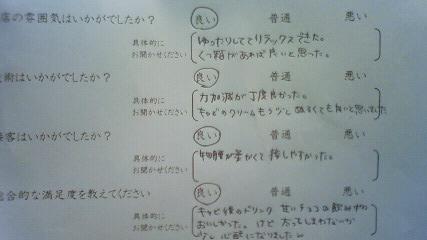 店の雰囲気はいかがでしたか? 良い 普通 悪い
具体的に ゆったりしてリラックスできた。
お聞かせください くつ箱があれば良いと思った。
技術はいかがでしたか? 良い 普通 悪い
具体的に 力加減が丁度良かった。
お聞かせください キャビのクリームもう少し ぬるくても良いと思いました
接客はいかがでしたか? 良い 普通 悪い
具体的に 物腰が柔かくて 接しやすかった。
お聞かせください
総合的な満足度を教えてください 良い 普通 悪い
具体的に キャビ後のドリンク 甘いチョコの飲み物
お聞かせください おいしかった。けど 太ってしまわないか
少し心配になりました